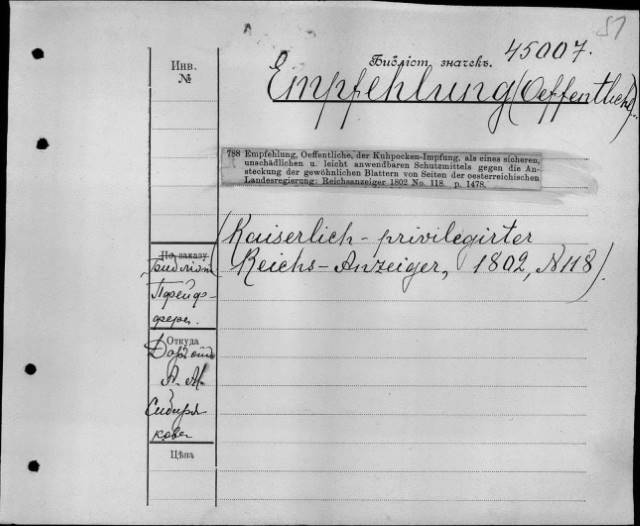 51
Инв.
№
Библіот. значекъ. 45007.
Empfehlung (Oeffentliche)..
788 Empfehlung, Oeffentliche, der Kuhpocken-Impfung, als eines sicheren,
unschädlichen u. leicht anwendbaren Schutzmittels gegen die An-
steckung der gewöhnlichen Blattern von Seiten der oesterreichischen
Landesregierung: Reichsanzeiger 1802 No. 118. p. 1478.
(Kaiserlich-privilegirter
Reichs-Anzeiger, 1802, N 118).
По заказу
Библіот.
Пфейф-
фера.
Откуда
Даръ
А. М.
Сибиря
кова
Цѣна